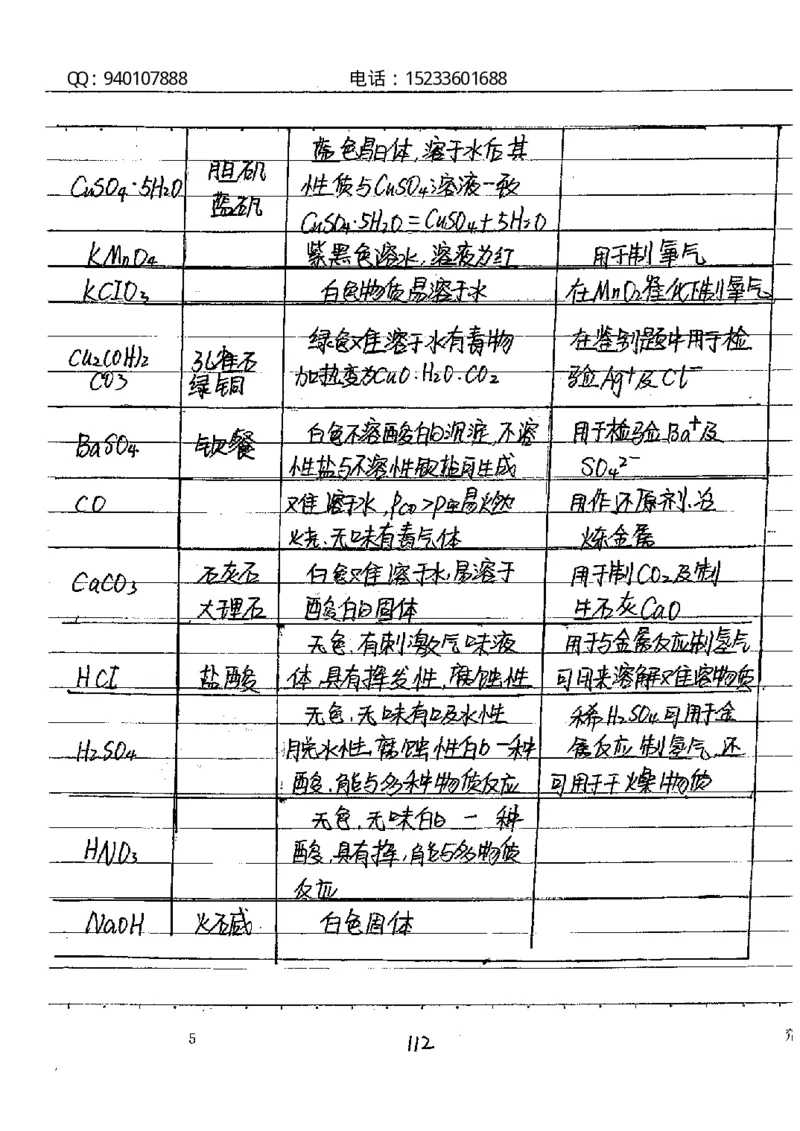 QQ：940107888 电话：15233601688
蓝色晶体，溶于水后其
CuSO4·5H2O 胆矾 性质与CuSO4溶液一致
蓝矾 CuSO4·5H2O=CuSO4+5H2O
KMnO4 紫黑色溶水，溶液为红 用于制氧气
KClO3 白色物质易溶于水 在MnO2催化下制氧气
Cu2(OH)2 孔雀石 绿色难溶于水有毒物 在鉴别题中用于检
CO3 绿铜 加热变为CuO·H2O·CO2 验Ag+及Cl-
BaSO4 钡餐 白色不溶酸的沉淀，不溶 用于检验Ba+及
性盐与不溶性钡盐可生成 SO4²⁻
CO 难溶于水，ρco>ρ 易燃 用作还原剂，冶
烧，无味有毒气体 炼金属
CaCO3 石灰石 白色难溶于水，易溶于 用于制CO2及制
大理石 酸的固体 生石灰CaO
无色，有刺激气味液 用于与金属反应制氢气
HCl 盐酸 体，具有挥发性，腐蚀性 可用来溶解难溶物质
无色，无味有吸水性 稀H2SO4可用于金
H2SO4 脱水性，腐蚀性的一种 属反应制氢气，还
酸，能与多种物质反应 可用于干燥物质
无色，无味的一种
HNO3 酸，具有挥，能与多物质
反应
NaOH 火石碱 白色固体
5 112